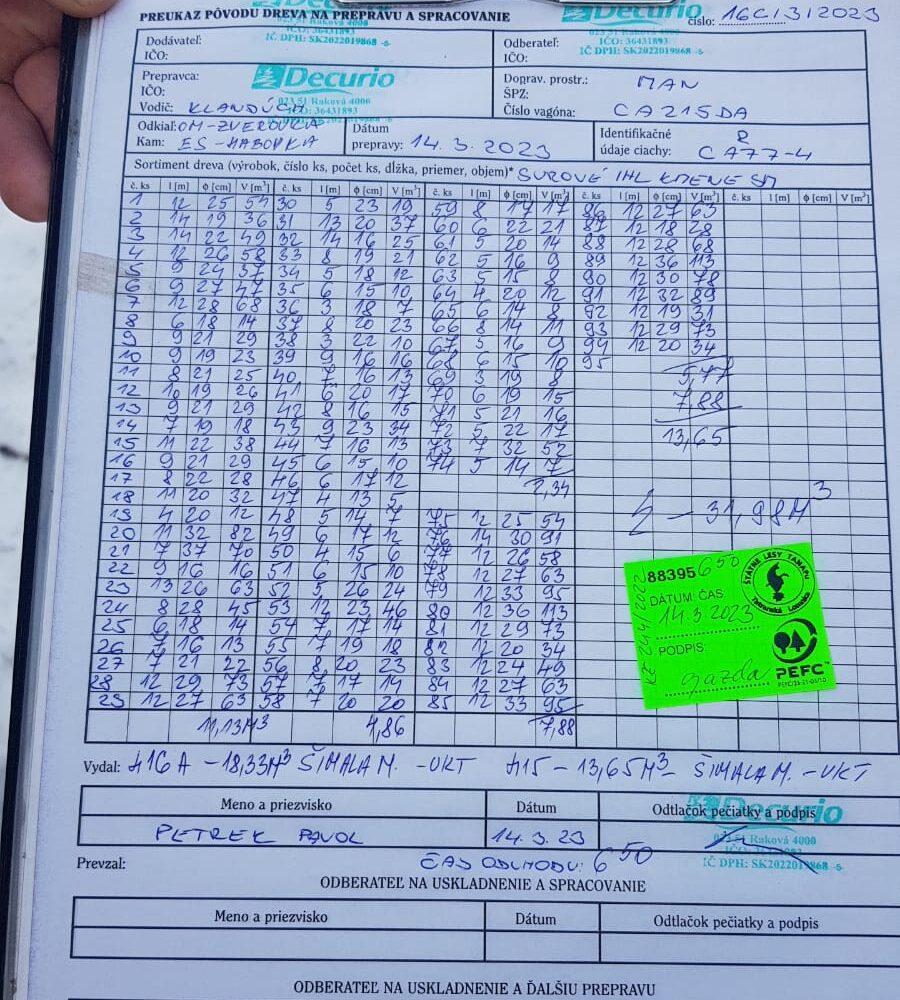 PREUKAZ PÔVODU DREVA NA PREPRAVU A SPRACOVANIE
Decurio
číslo: 16C/3/2023
IČO: 36431893
IČ DPH: SK2022019868 -6-
023 51 Raková 4000
IČO: 36431893
IČ DPH: SK2022019868 -6-
Dodávateľ:
IČO:
Odberateľ:
IČO:
Prepravca:
IČO:
Decurio
023 51 Raková 4000
IČO: 36431893
Vodič: KLANDÚCH
Doprav. prostr.: MAN
ŠPZ:
Číslo vagóna: CA215DA
Odkiaľ: OM-ZVEROVKA
Kam: ES-HABOVKA
Dátum
prepravy: 14.3.2023
Identifikačné
údaje ciachy: R
CA77-4
Sortiment dreva (výrobok, číslo ks, počet ks, dĺžka, priemer, objem)* SUROVÉ IHL KMENE SM
č. ks l [m] ϕ [cm] V [m³] č. ks l [m] ϕ [cm] V [m³] č. ks l [m] ϕ [cm] V [m³] č. ks l [m] ϕ [cm] V [m³] č. ks l [m] ϕ [cm] V [m³]
1 12 25 54 30 5 23 19 59 8 17 17 86 12 27 63
2 14 19 36 31 13 20 37 60 6 22 21 87 12 18 28
3 14 22 49 32 14 16 25 61 5 20 14 88 12 28 68
4 12 26 58 33 8 19 21 62 5 16 9 89 12 36 113
5 9 24 37 34 5 18 12 63 5 15 8 90 12 30 78
6 9 27 47 35 6 15 10 64 4 20 12 91 12 32 89
7 12 28 68 36 3 18 7 65 6 14 8 92 12 19 31
8 6 18 14 37 8 20 23 66 8 14 11 93 12 29 73
9 9 21 29 38 3 22 10 67 5 16 9 94 12 20 34
10 9 19 23 39 9 16 16 68 6 15 10 95
11 8 21 25 40 7 16 13 69 3 19 8 5,77
12 10 19 26 41 6 20 17 70 6 19 15 7,88
13 9 21 29 42 8 16 15 71 5 21 16
14 7 19 18 43 9 23 34 72 5 22 17 13,65
15 11 22 38 44 7 16 13 73 7 32 52
16 9 21 29 45 6 15 10 74 5 14 7
17 8 22 28 46 6 17 12 2,34
18 11 20 32 47 4 13 5
19 4 20 12 48 5 14 7 75 12 25 54
20 11 32 82 49 6 17 12 76 14 30 91
21 7 37 70 50 4 15 6 77 12 26 58
22 9 16 16 51 6 15 10 78 12 27 63
23 13 26 63 52 5 26 24 79 12 33 95
24 8 28 45 53 12 23 46 80 12 36 113
25 6 18 14 54 7 17 14 81 12 29 73
26 7 16 13 55 7 19 18 82 12 20 34
27 7 21 22 56 8 20 23 83 12 24 49
28 12 29 73 57 7 17 14 84 12 27 63
29 12 27 63 58 7 20 20 85 12 33 95
11,13M³ 4,86 7,88
31,98M³
88395 650
ŠTÁTNE LESY TANAPU
Tatranská Lomnica
DÁTUM, ČAS:
14.3.2023
PODPIS:
gazda
PEFC™
Vydal: 416A - 18,33M³ ŠIMALA M. -UKT 415 - 13,65M³ - ŠIMALA M. - UKT
Meno a priezvisko Dátum Odtlačok pečiatky a podpis
PETREK PAVOL 14.3.23
Decurio
023 51 Raková 4000
IČ DPH: SK2022019868 -6-
Prevzal: ČAS ODCHODU: 6 50
ODBERATEĽ NA USKLADNENIE A SPRACOVANIE
Meno a priezvisko Dátum Odtlačok pečiatky a podpis
ODBERATEĽ NA USKLADNENIE A ĎALŠIU PREPRAVU